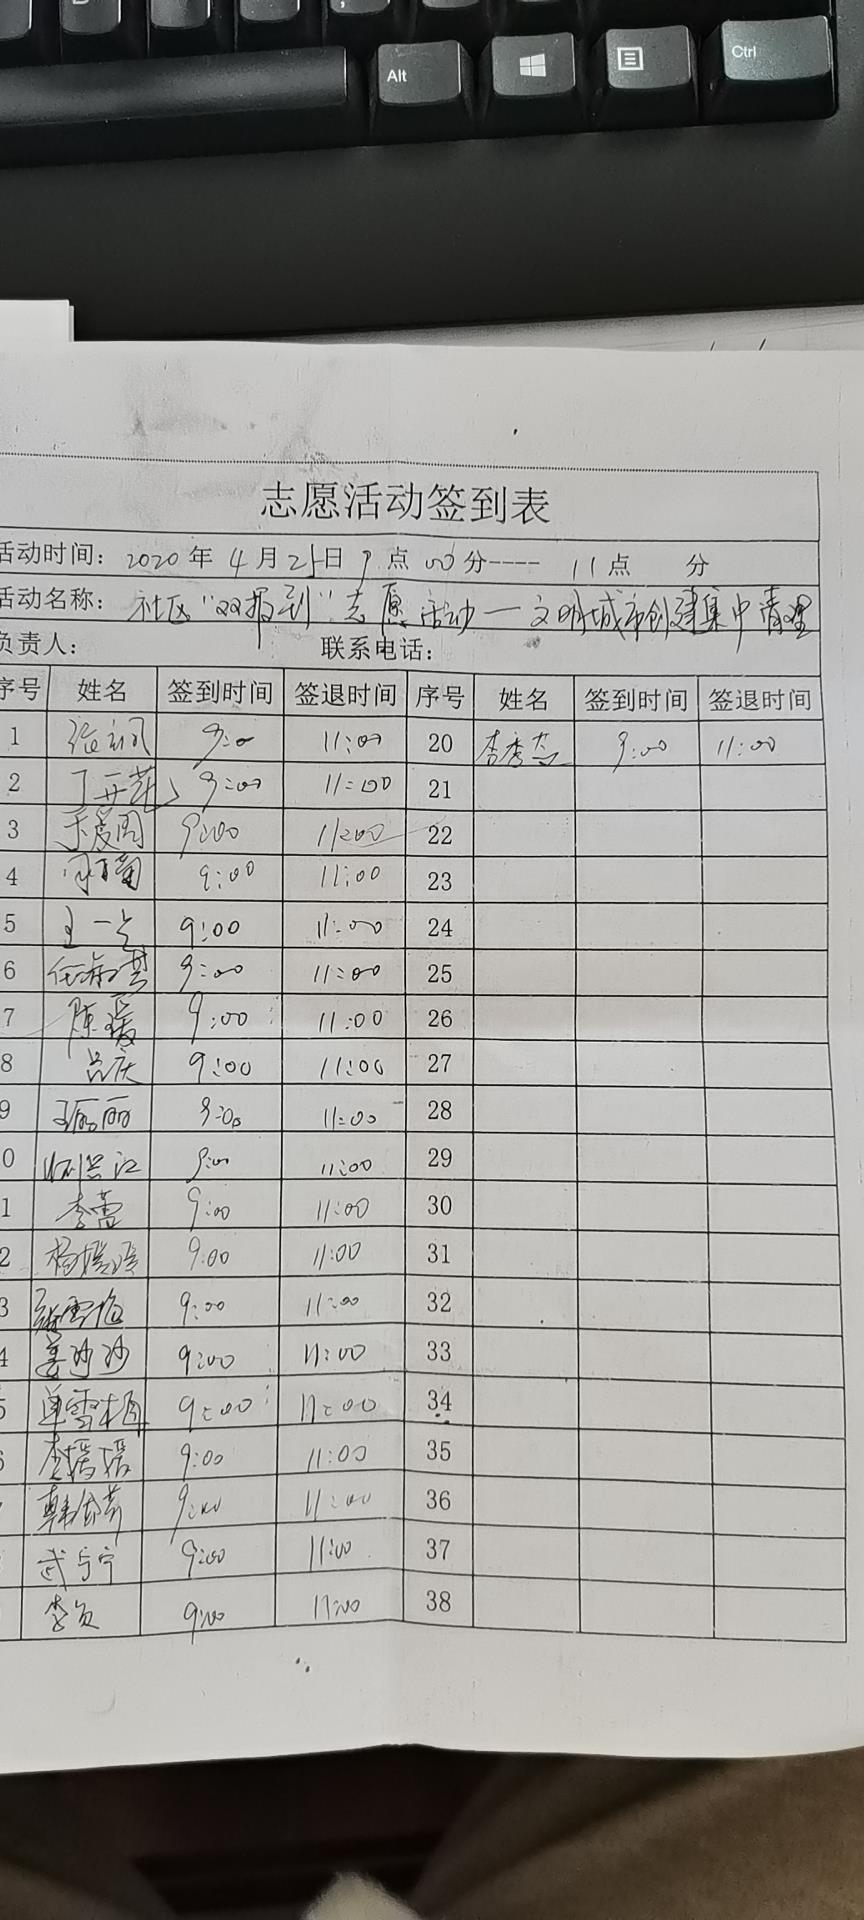 Alt
Ctrl
志愿活动签到表
活动时间：2020年4月25日9点00分----11点 分
活动名称：社区"双报到"志愿活动—文明城市创建集中清理
负责人： 联系电话：
序号 姓名 签到时间 签退时间 序号 姓名 签到时间 签退时间
1 9:00 11:00 20 李秀杰 9:00 11:00
2 9:00 11:00 21
3 9:00 11:00 22
4 9:00 11:00 23
5 王一 9:00 11:00 24
6 9:00 11:00 25
7 陈瑗 9:00 11:00 26
8 吕庆 9:00 11:00 27
9 王丽丽 9:00 11:00 28
0 11:00 29
1 李蕾 9:00 11:00 30
2 杨 9:00 11:00 31
3 9:00 11:00 32
4 姜沙沙 9:00 11:00 33
5 单雪梅 9:00 11:00 34
6 李媛媛 9:00 11:00 35
韩 9:00 11:00 36
武宁宁 9:00 11:00 37
李 9:00 11:00 38